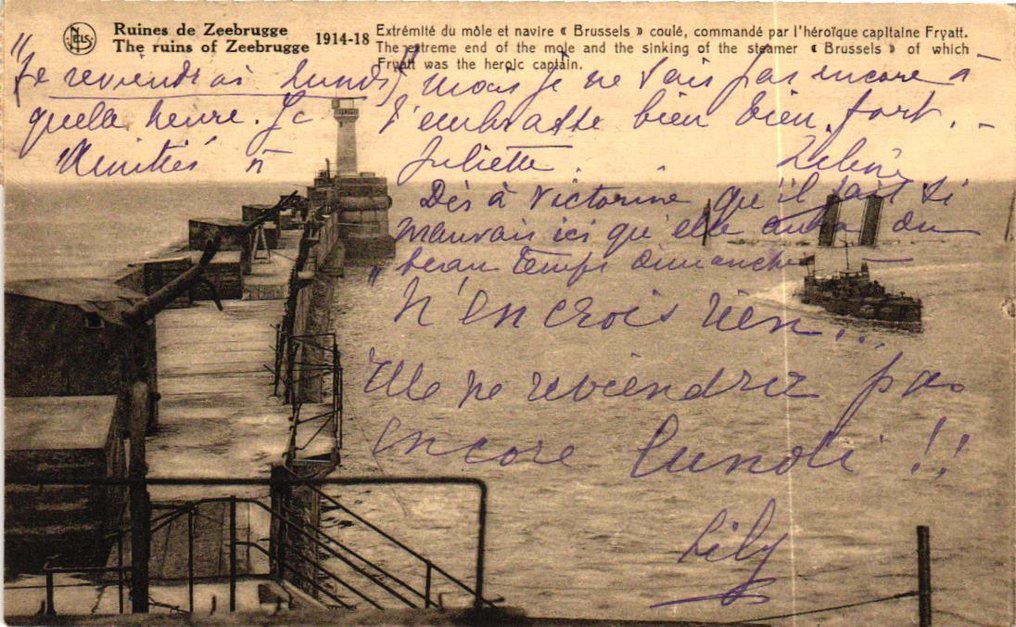 NELS
Ruines de Zeebrugge
The ruins of Zeebrugge
1914-18
Extrémité du môle et navire « Brussels » coulé, commandé par l'héroïque capitaine Fryatt.
The extreme end of the mole and the sinking of the steamer « Brussels » of which
Fryatt was the heroic captain.
"Je reviendrai lundi, mais je ne sais pas encore à
quelle heure. Je t'embrasse bien bien fort. -
Amitiés à Juliette.
Dis à Victorine qu'il fait si
mauvais ici qu'elle aura du
beau temps dimanche
N'en crois rien...
Elle ne reviendra pas
encore lundi !!
Lily